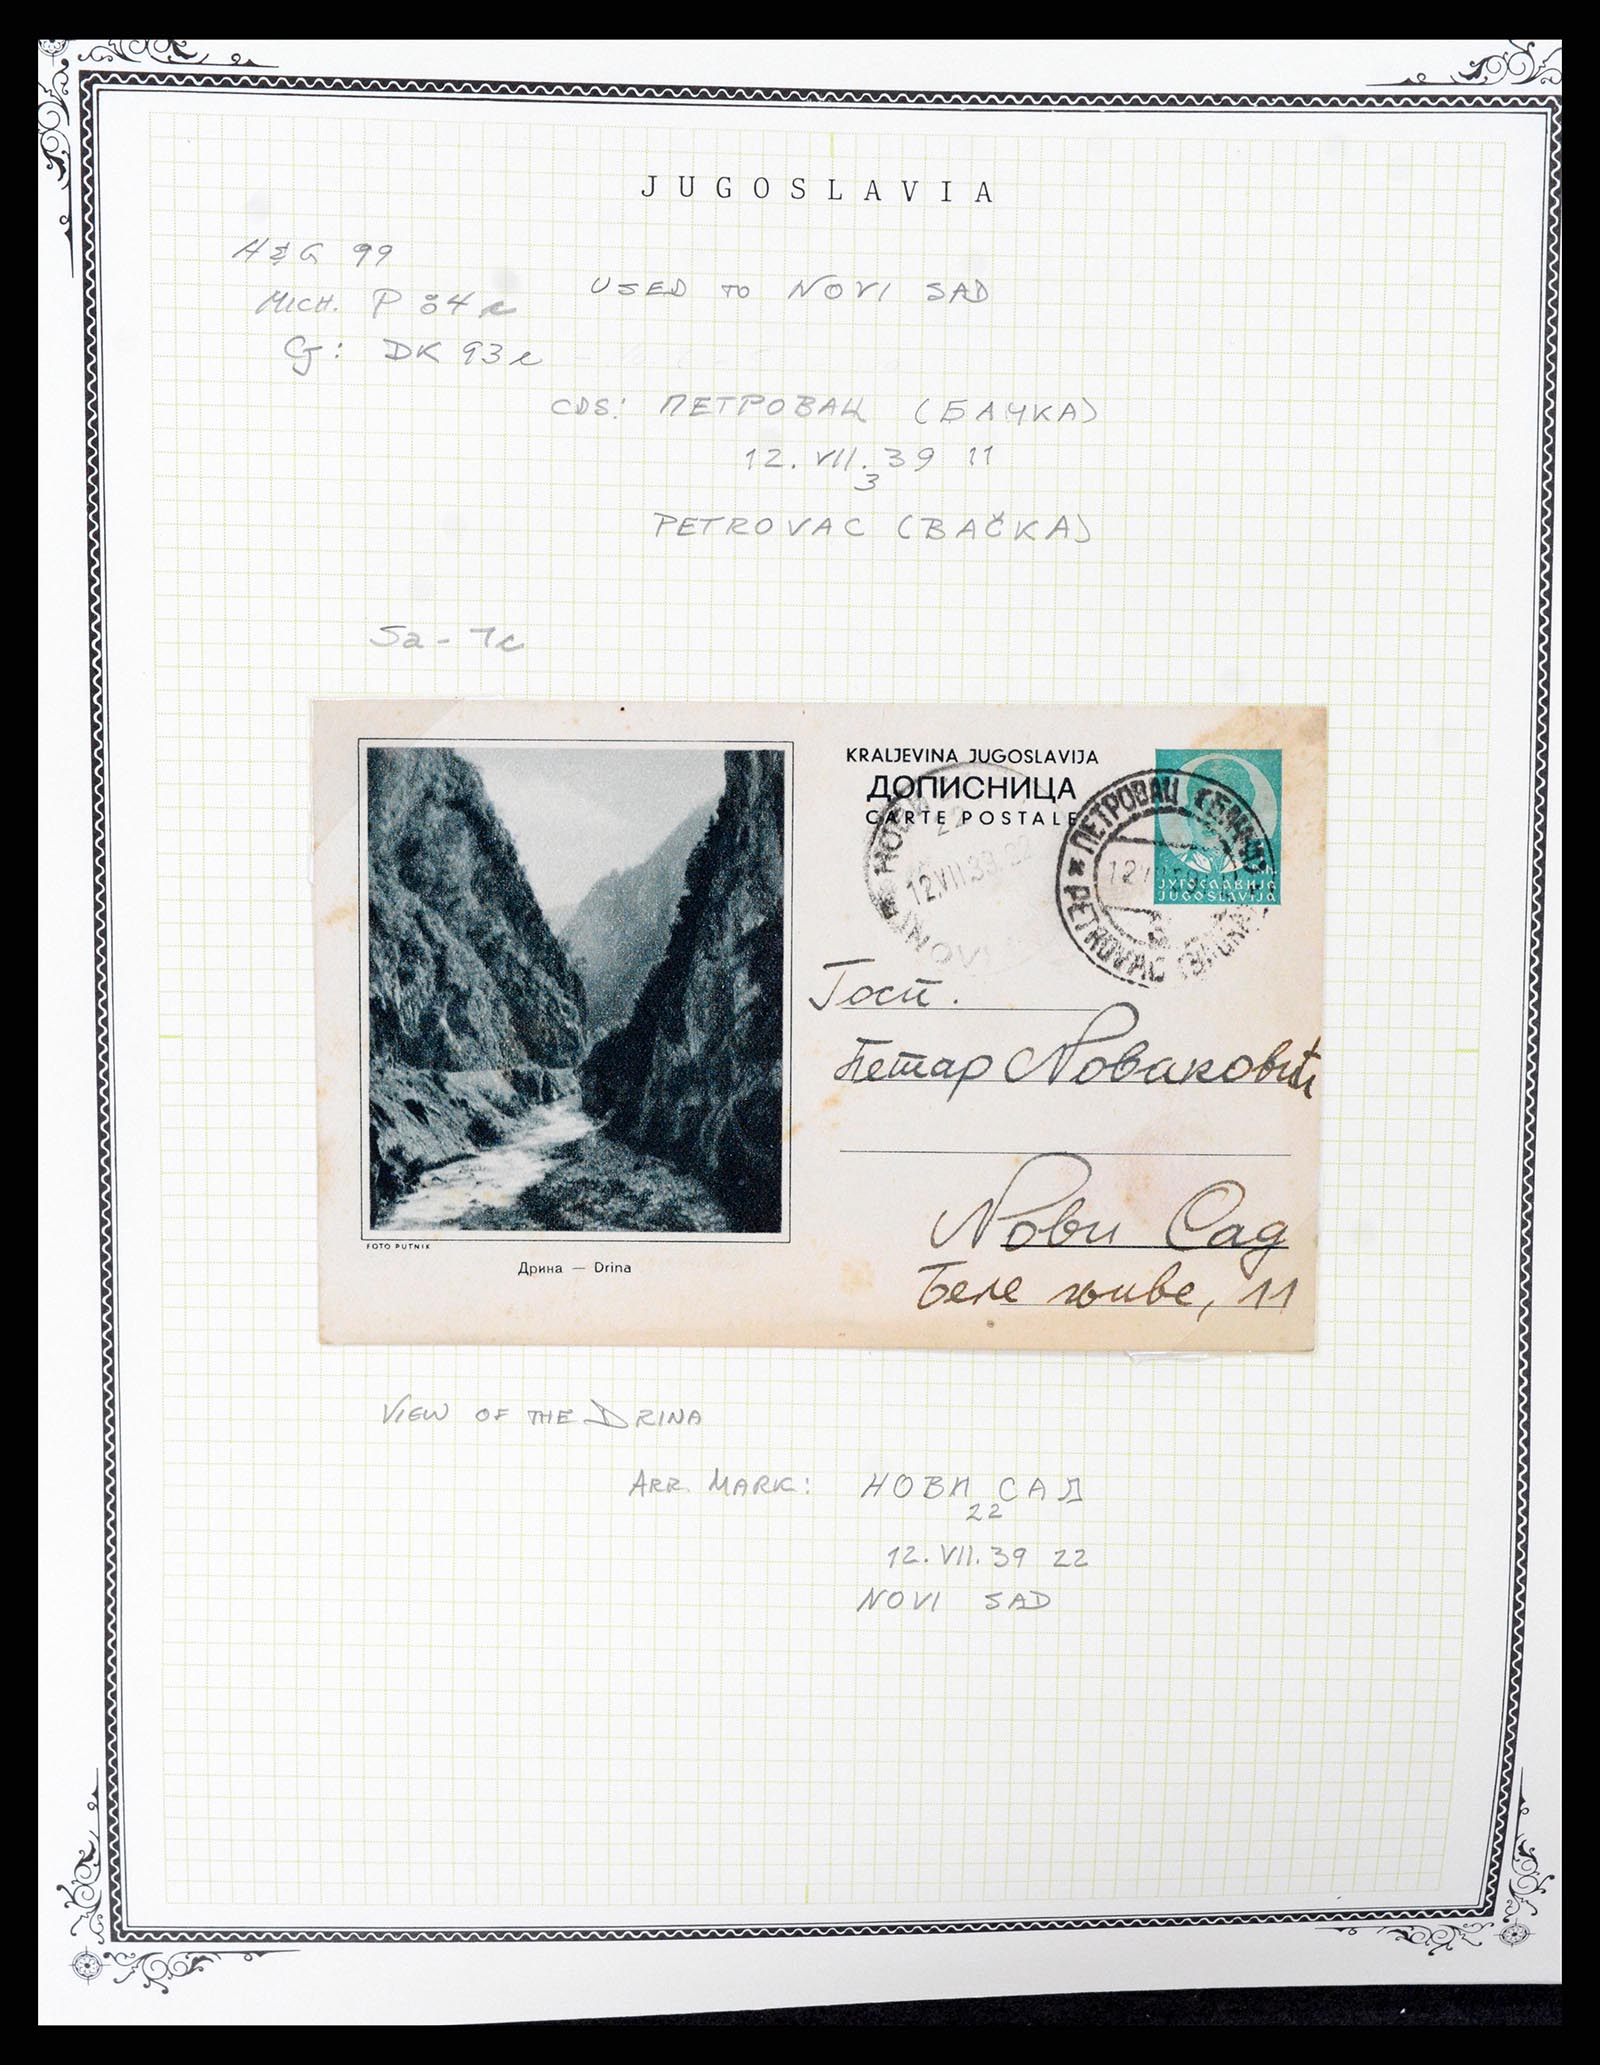 JUGOSLAVIA
H&G 99
MICH. P 84
USED TO NOVI SAD
CJ: DK 93
CDS: ПЕТРОВАЦ (БАЧКА)
12. VII. 39 11
3
PETROVAC (BAČKA)
5a - 7c
KRALJEVINA JUGOSLAVIJA
ДОПИСНИЦА
CARTE POSTALE
НОВИ
22
12.VII.39.22
NOVI
ПЕТРОВАЦ (БАЧКА)
PETROVAC (BAČKA)
ЈУГОСЛАВИЈА
JUGOSLAVIJA
Госп.
Петар Новаковић
Нови Сад
Беле њиве, 11
FOTO PUTNIK
Дрина — Drina
VIEW OF THE DRINA
ARR. MARK: НОВИ САД
22
12. VII. 39 22
NOVI SAD